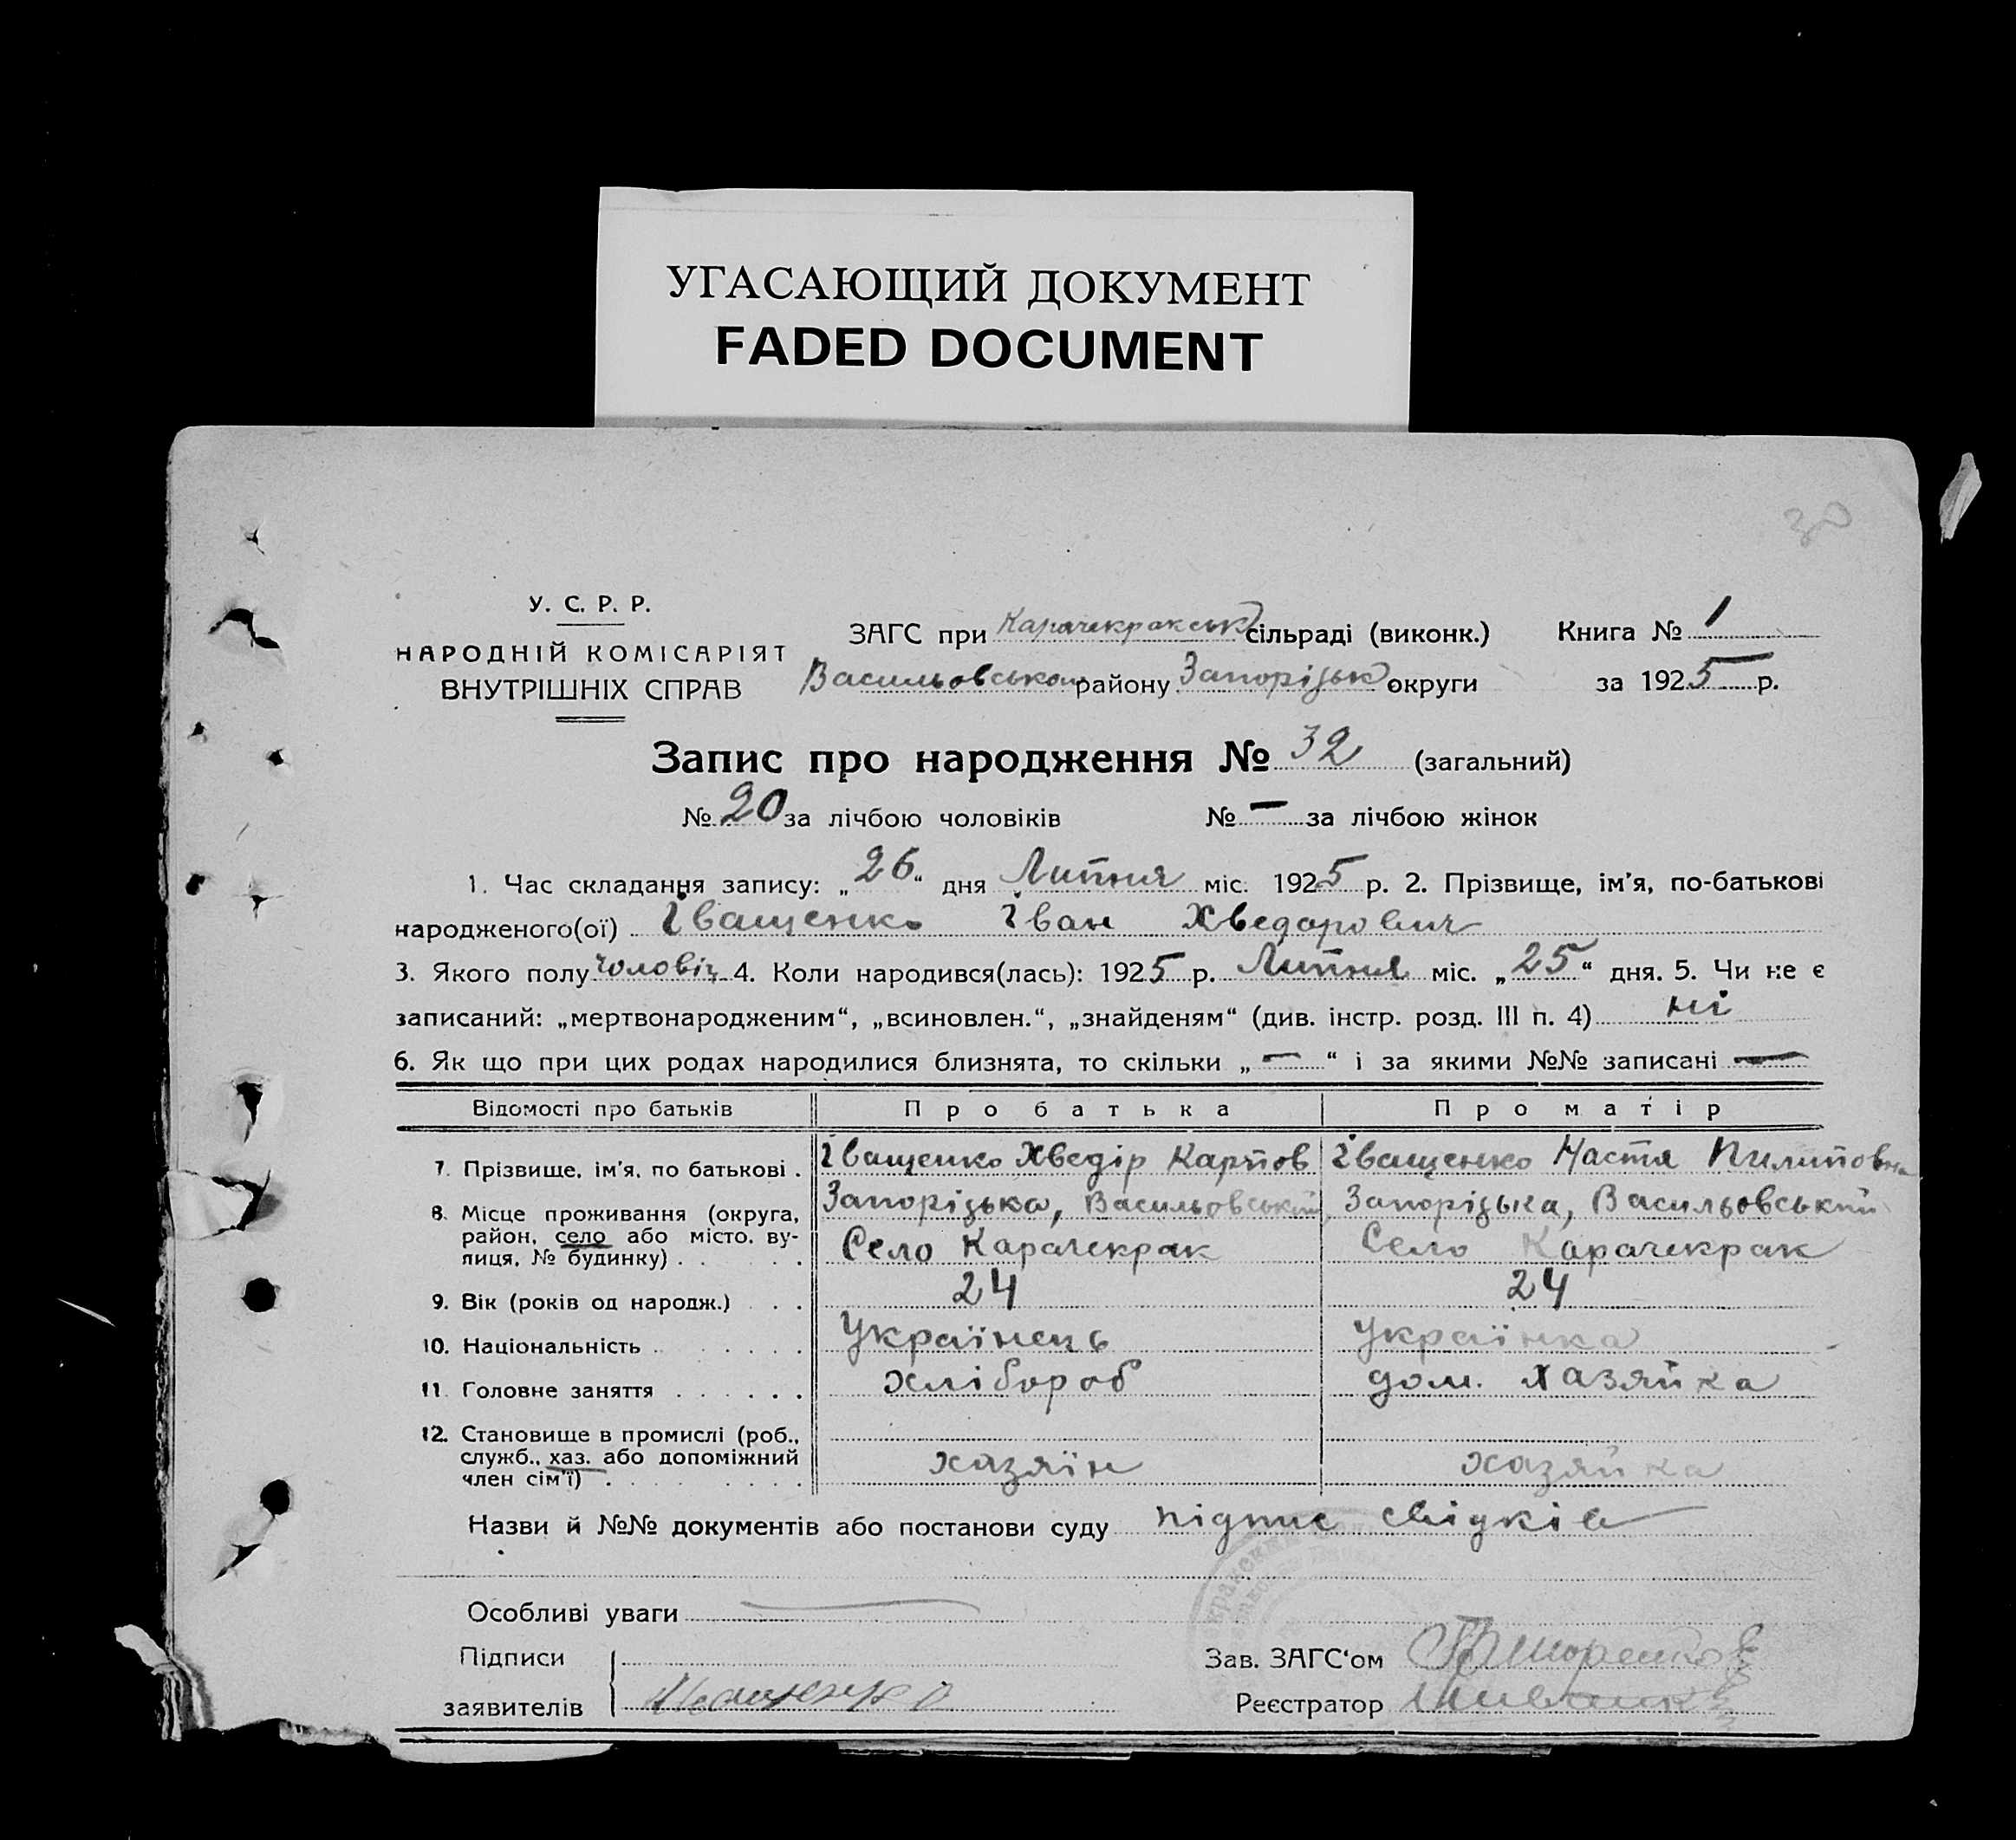 УГАСАЮЩИЙ ДОКУМЕНТ
FADED DOCUMENT
30
У. С. Р. Р.
НАРОДНІЙ КОМІСАРІЯТ
ВНУТРІШНІХ СПРАВ
ЗАГС при Карачекракськ сільраді (виконк.) Книга № 1
Васильовськом району Запоріzьк округи за 1925 р.
Запис про народження № 32 (загальний)
№ 20 за лічбою чоловіків № — за лічбою жінок
1. Час складання запису: „26“ дня Липня міс. 1925 р. 2. Прізвище, ім'я, по-батькові
народженого(ої) Іващенко Іван Хведорович
3. Якого полу чоловіч 4. Коли народився(лась): 1925 р. Липня міс. „25“ дня. 5. Чи не є
записаний: „мертвонародженим“, „всиновлен.“, „знайденям“ (див. інстр. розд. III п. 4) ні
6. Як що при цих родах народилися близнята, то скільки „—“ і за якими №№ записані —
Відомості про батьків Про батька Про матір
7. Прізвище, ім'я, по батькові . Іващенко Хведір Карпов Іващенко Настя Пилиповна
8. Місце проживання (округа, Запорізька, Васильовський Запорізька, Васильовський
район, село або місто, ву-
лиця, № будинку) . . . . Село Карачекрак Село Карачекрак
9. Вік (років од народж.) . . 24 24
10. Національність . . . . . Українець Українка
11. Головне заняття . . . . . . хлібороб дом. хазяйка
12. Становище в промислі (роб.,
служб., хаз. або допоміжний хазяїн хазяйка
член сім'ї) . . . . . .
Назви й №№ документів або постанови суду підпис свідків
Особливі уваги
Підписи Зав. ЗАГС'ом
заявителів Реєстратор